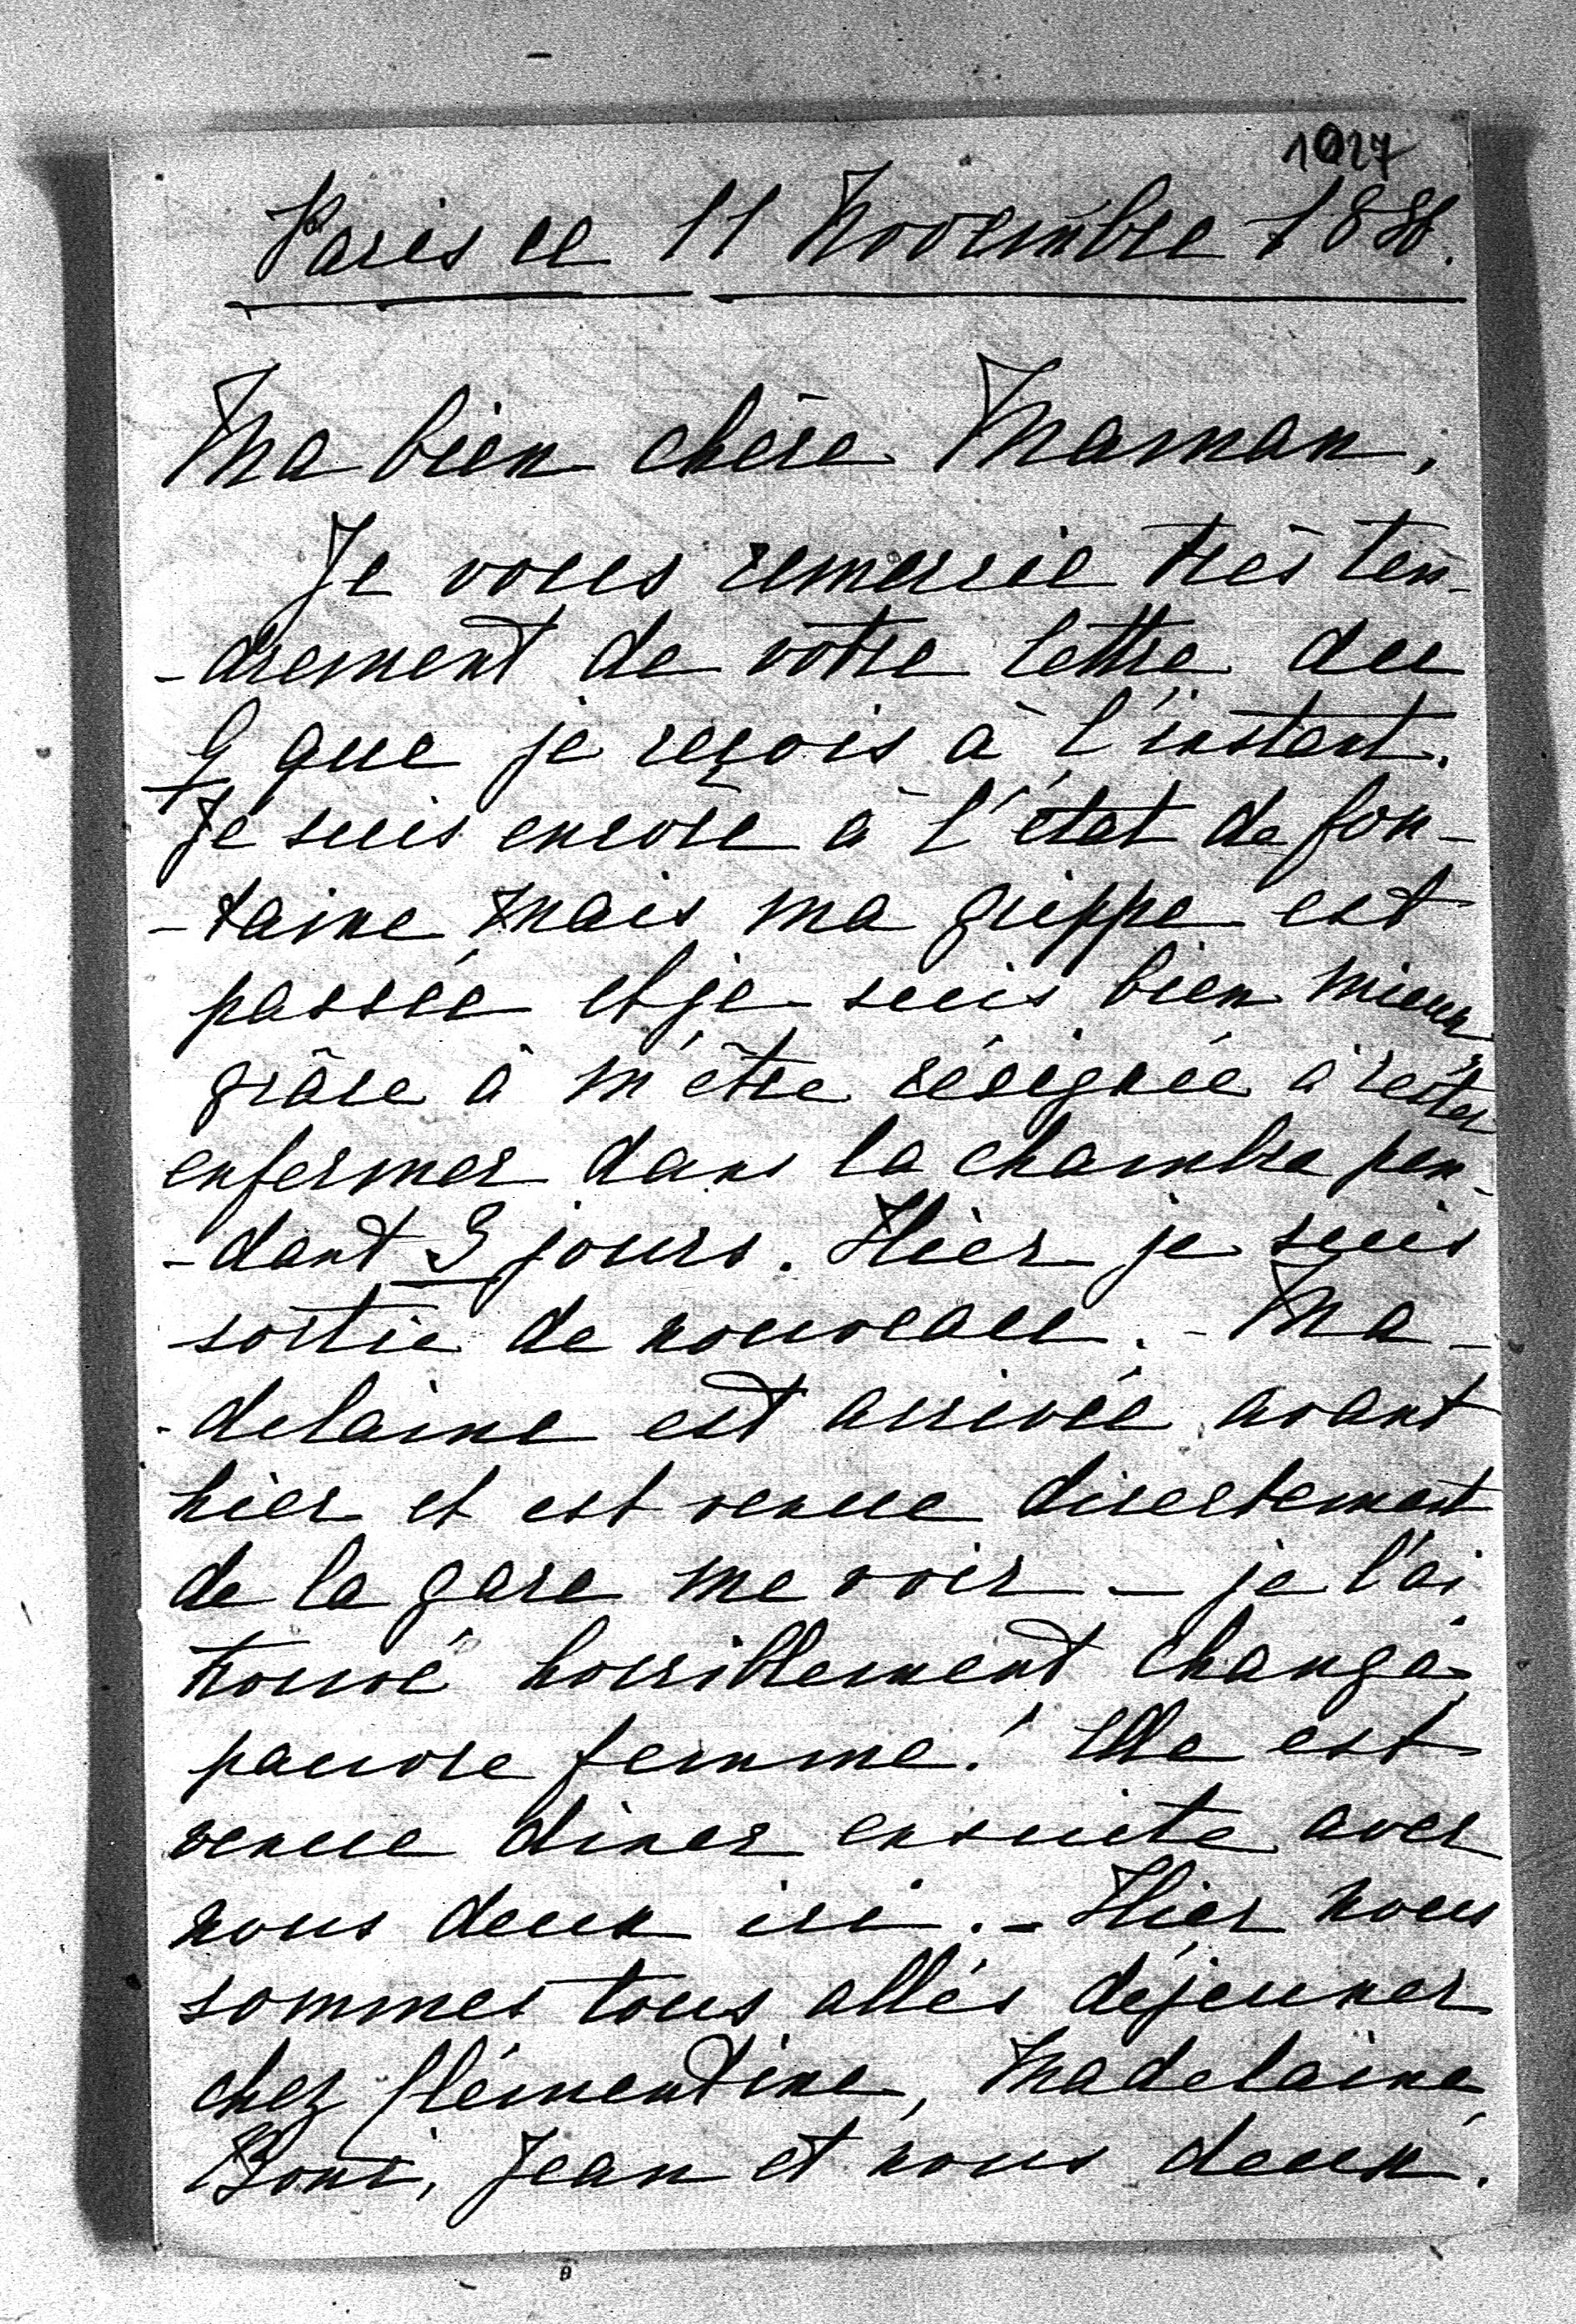 1027
Paris ce 11 Novembre 188
Ma bien chère Maman,
Je vous remercie très ten-
-drement de votre lettre du
9 que je reçois à l'instant.
Je suis encore à l'état de fon-
-taine mais ma grippe est
passée et je suis bien mieux
grâce à m'être résignée à rester
enfermer dans la chambre pen-
-dant 3 jours. Hier je suis
sortie de nouveau. - Ma-
-delaine est arrivée avant
hier et est venue directement
de la gare me voir — je l'ai
trouvé horriblement changé,
pauvre femme! Elle est
venue diner ensuite avec
nous deux ici. - Hier nous
sommes tous allés déjeuner
chez Clémentine, Madelaine,
Boni, Jean et nous deux.